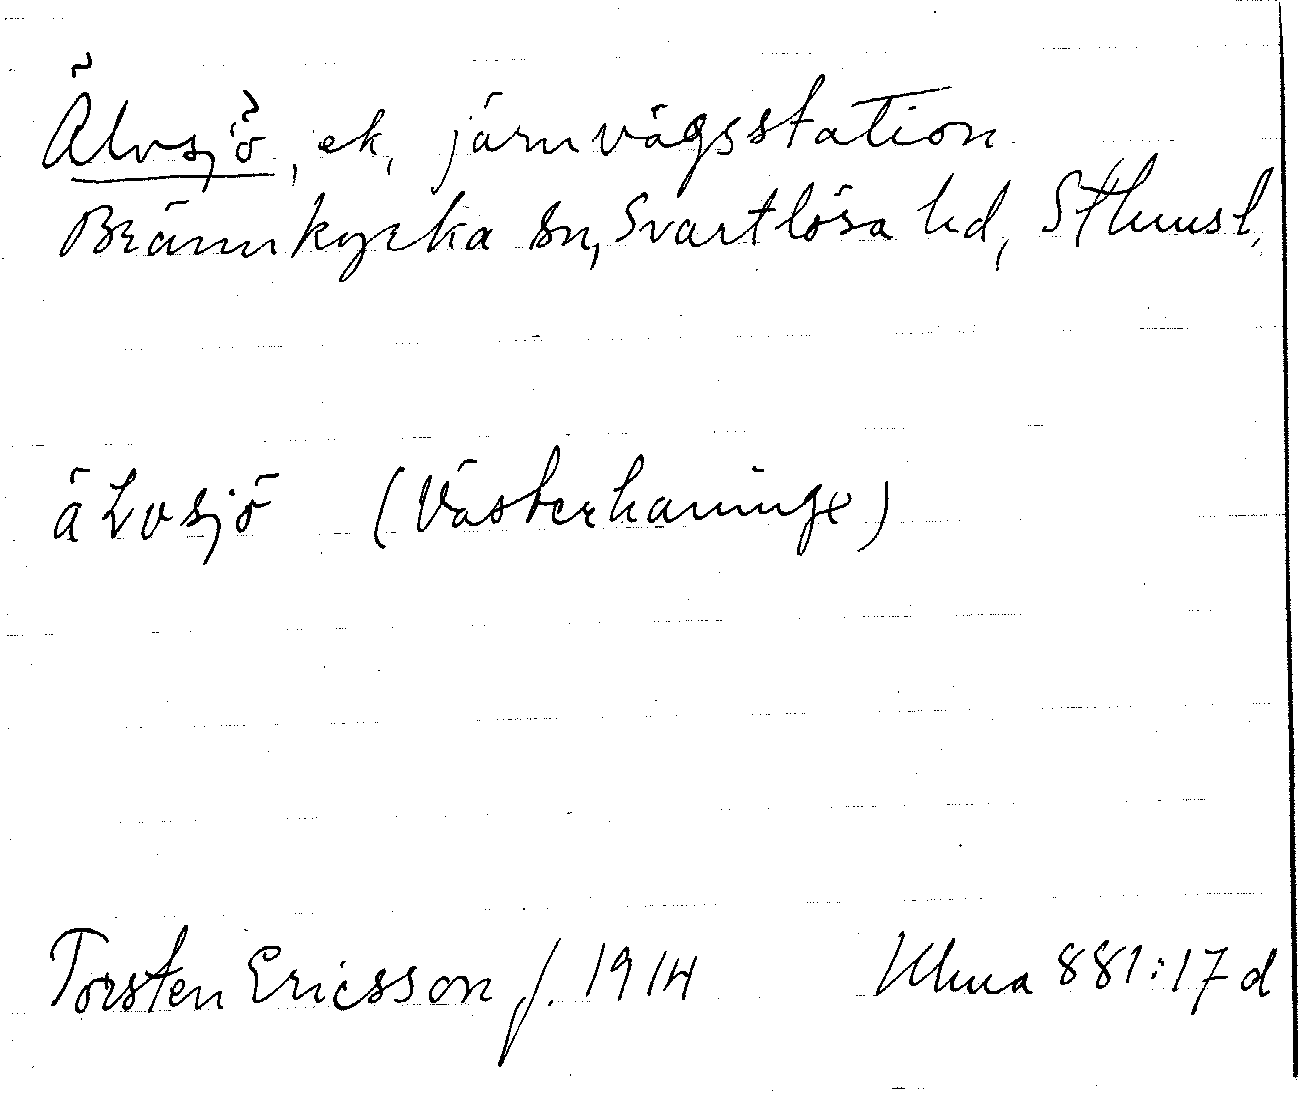 Älvsjö, ek, järnvägsstation
Brännkyrka sn, Svartlösa hd, Sthmsl.
äLvsjö (Västerhaninge)
Torsten Ericsson f. 1914 Ulma 881:17 d